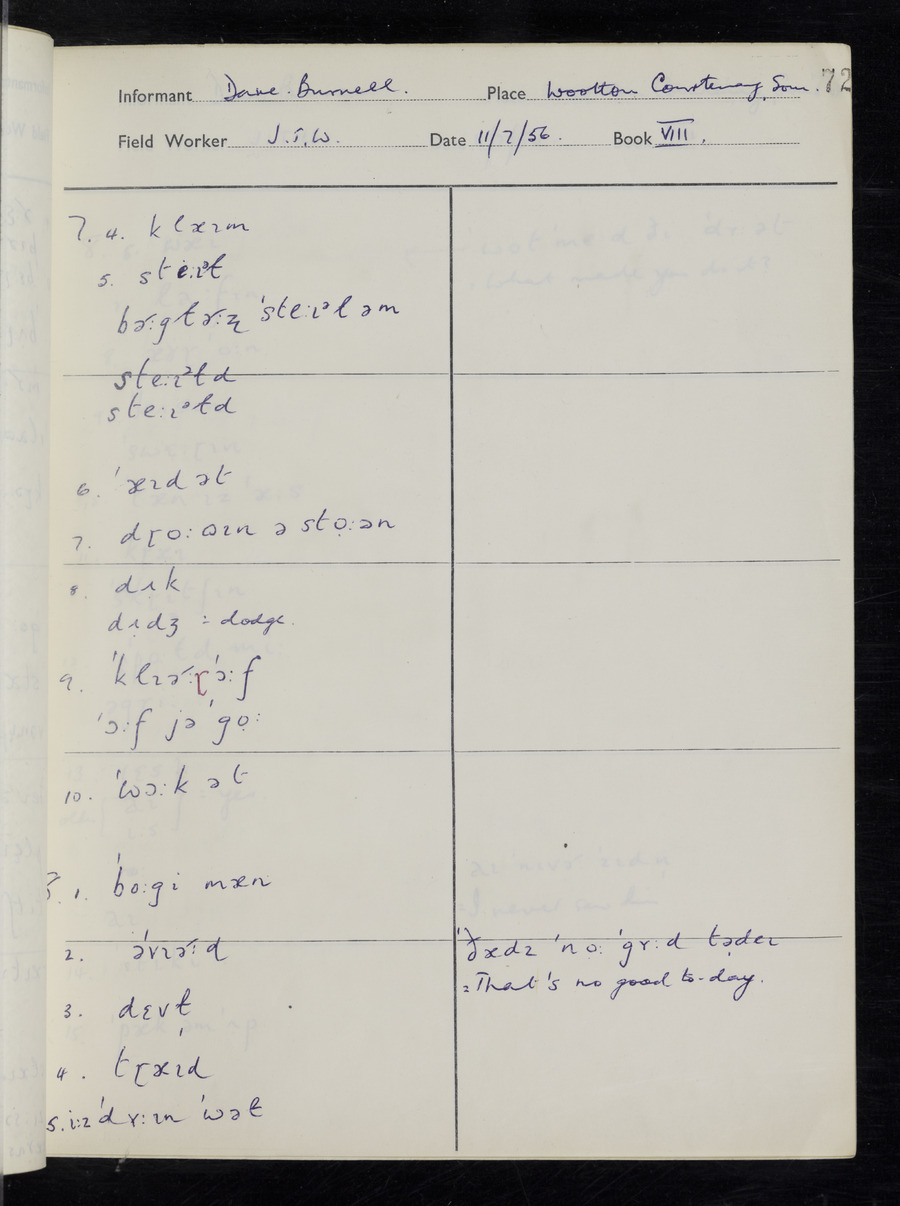 Informant Dave. Burnell. Place Wootton Courtenay, Som. 72
Field Worker J.T.W. Date 11/7/56. Book VIII.
7. 4. klæɪm
5. steːɪᵊl
bəʴːgləʴːʐ ˈsteːɪᵊl əm
steːɪᵊld
steːɪᵊld
6. ˈæɪd ət
7. dɽoːʊɪn ə sto̩ːən
8. dɪk
dɪdʒ = dodge.
9. ˈklɪəʴːɽˈɔːf
ˈɔːf jə ˈgo̩ː
10. ˈwɔːk ət
8. 1. ˈboːgi mæn
2. əˈvɪəʴːd
3. dɛvl̩
4. tɽæɪd
5. iːz ˈdʏːɪn ˈwət
ˈðædz ˈno̩ː ˈgʏːd tədeɪ
= That's no good to-day.